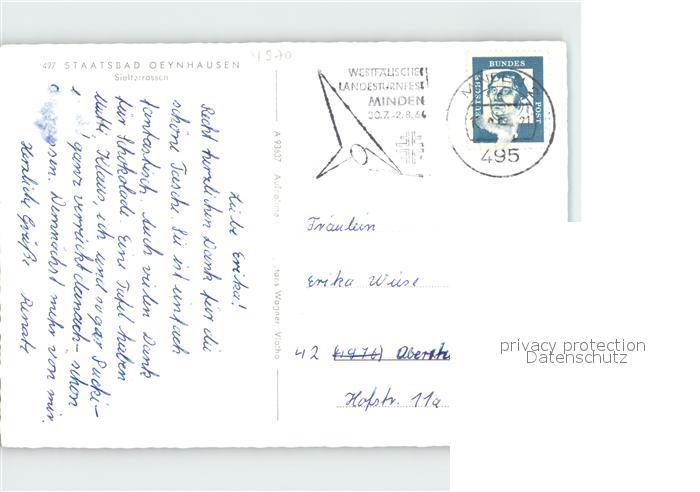 4570
497 STAATSBAD OEYNHAUSEN
Sielterrassen
Liebe Erika!
Recht herzlichen Dank für die
schöne Tasche. Sie ist einfach
fantastisch. Auch vielen Dank
für Schokolade. Eine Tafel haben
Mutti, Klaus, ich und sogar Sucki-
ganz verrückt danach - schon
Demnächst mehr von mir.
Herzliche Grüße Renate
A 93637 Aufnahme: Hans Wagner, Vlotho
WESTFÄLISCHES
LANDESTURNFEST
MINDEN
30.7.-2.8.64
495
DEUTSCHE BUNDES POST
Fräulein
Erika Wiese
42 (4976) Oberh
Hofstr. 11a
privacy protection
Datenschutz